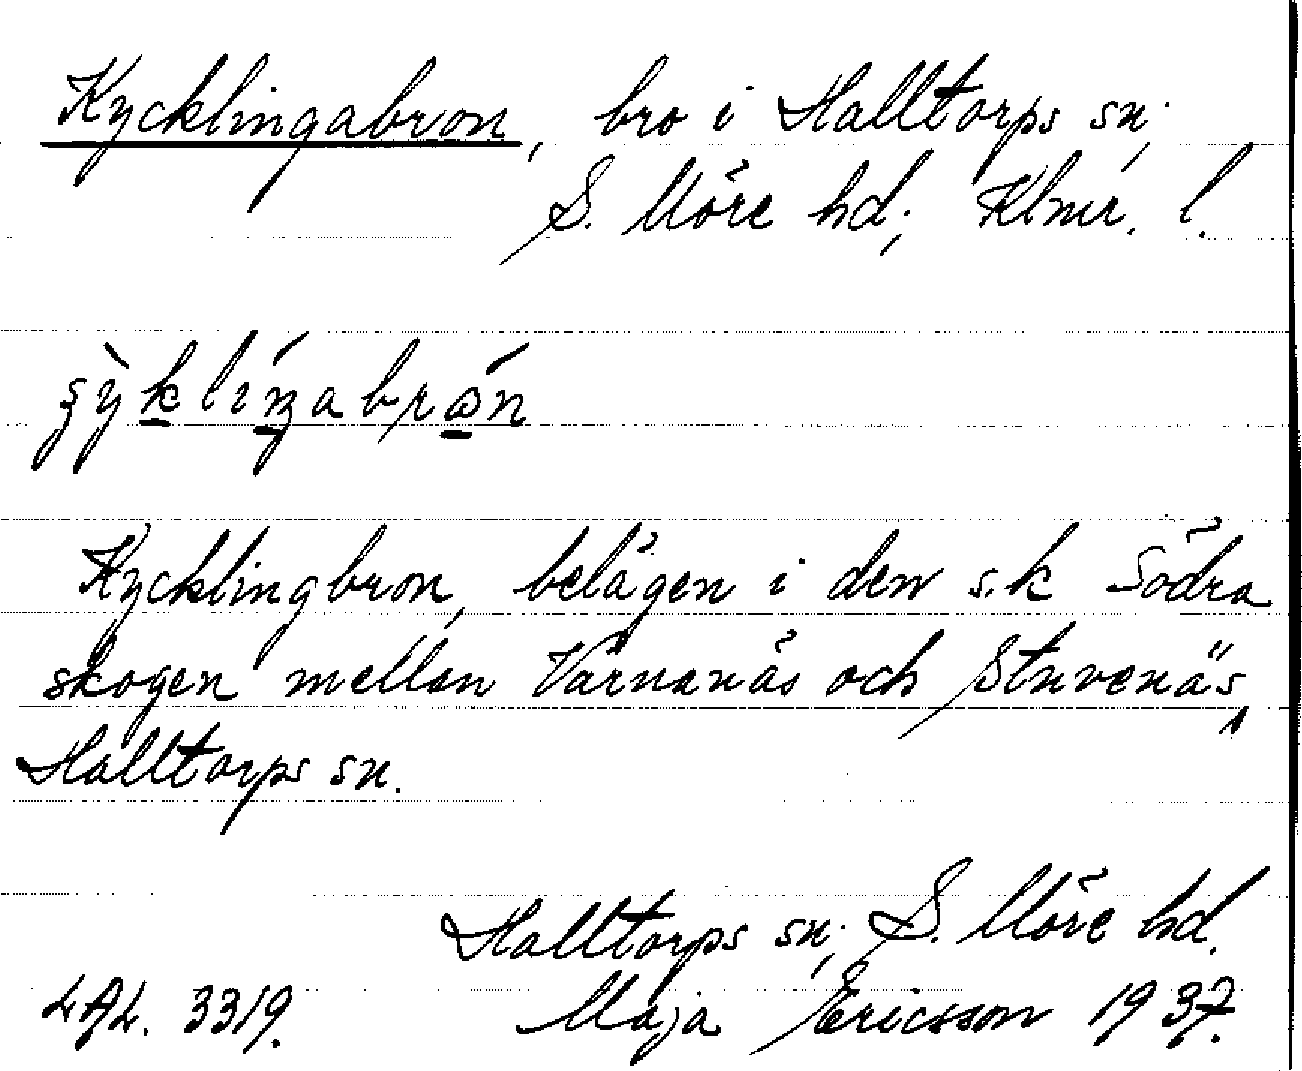 Kycklingabron, bro i Halltorps sn;
S. Möre hd; Klmr. l.
Kycklingbron, belägen i den s.k Södra
skogen mellan Värnanäs och Stuvenäs,
Halltorps sn.
Halltorps sn; S. Möre hd.
LAL. 3319. Maja Ericsson 1937.